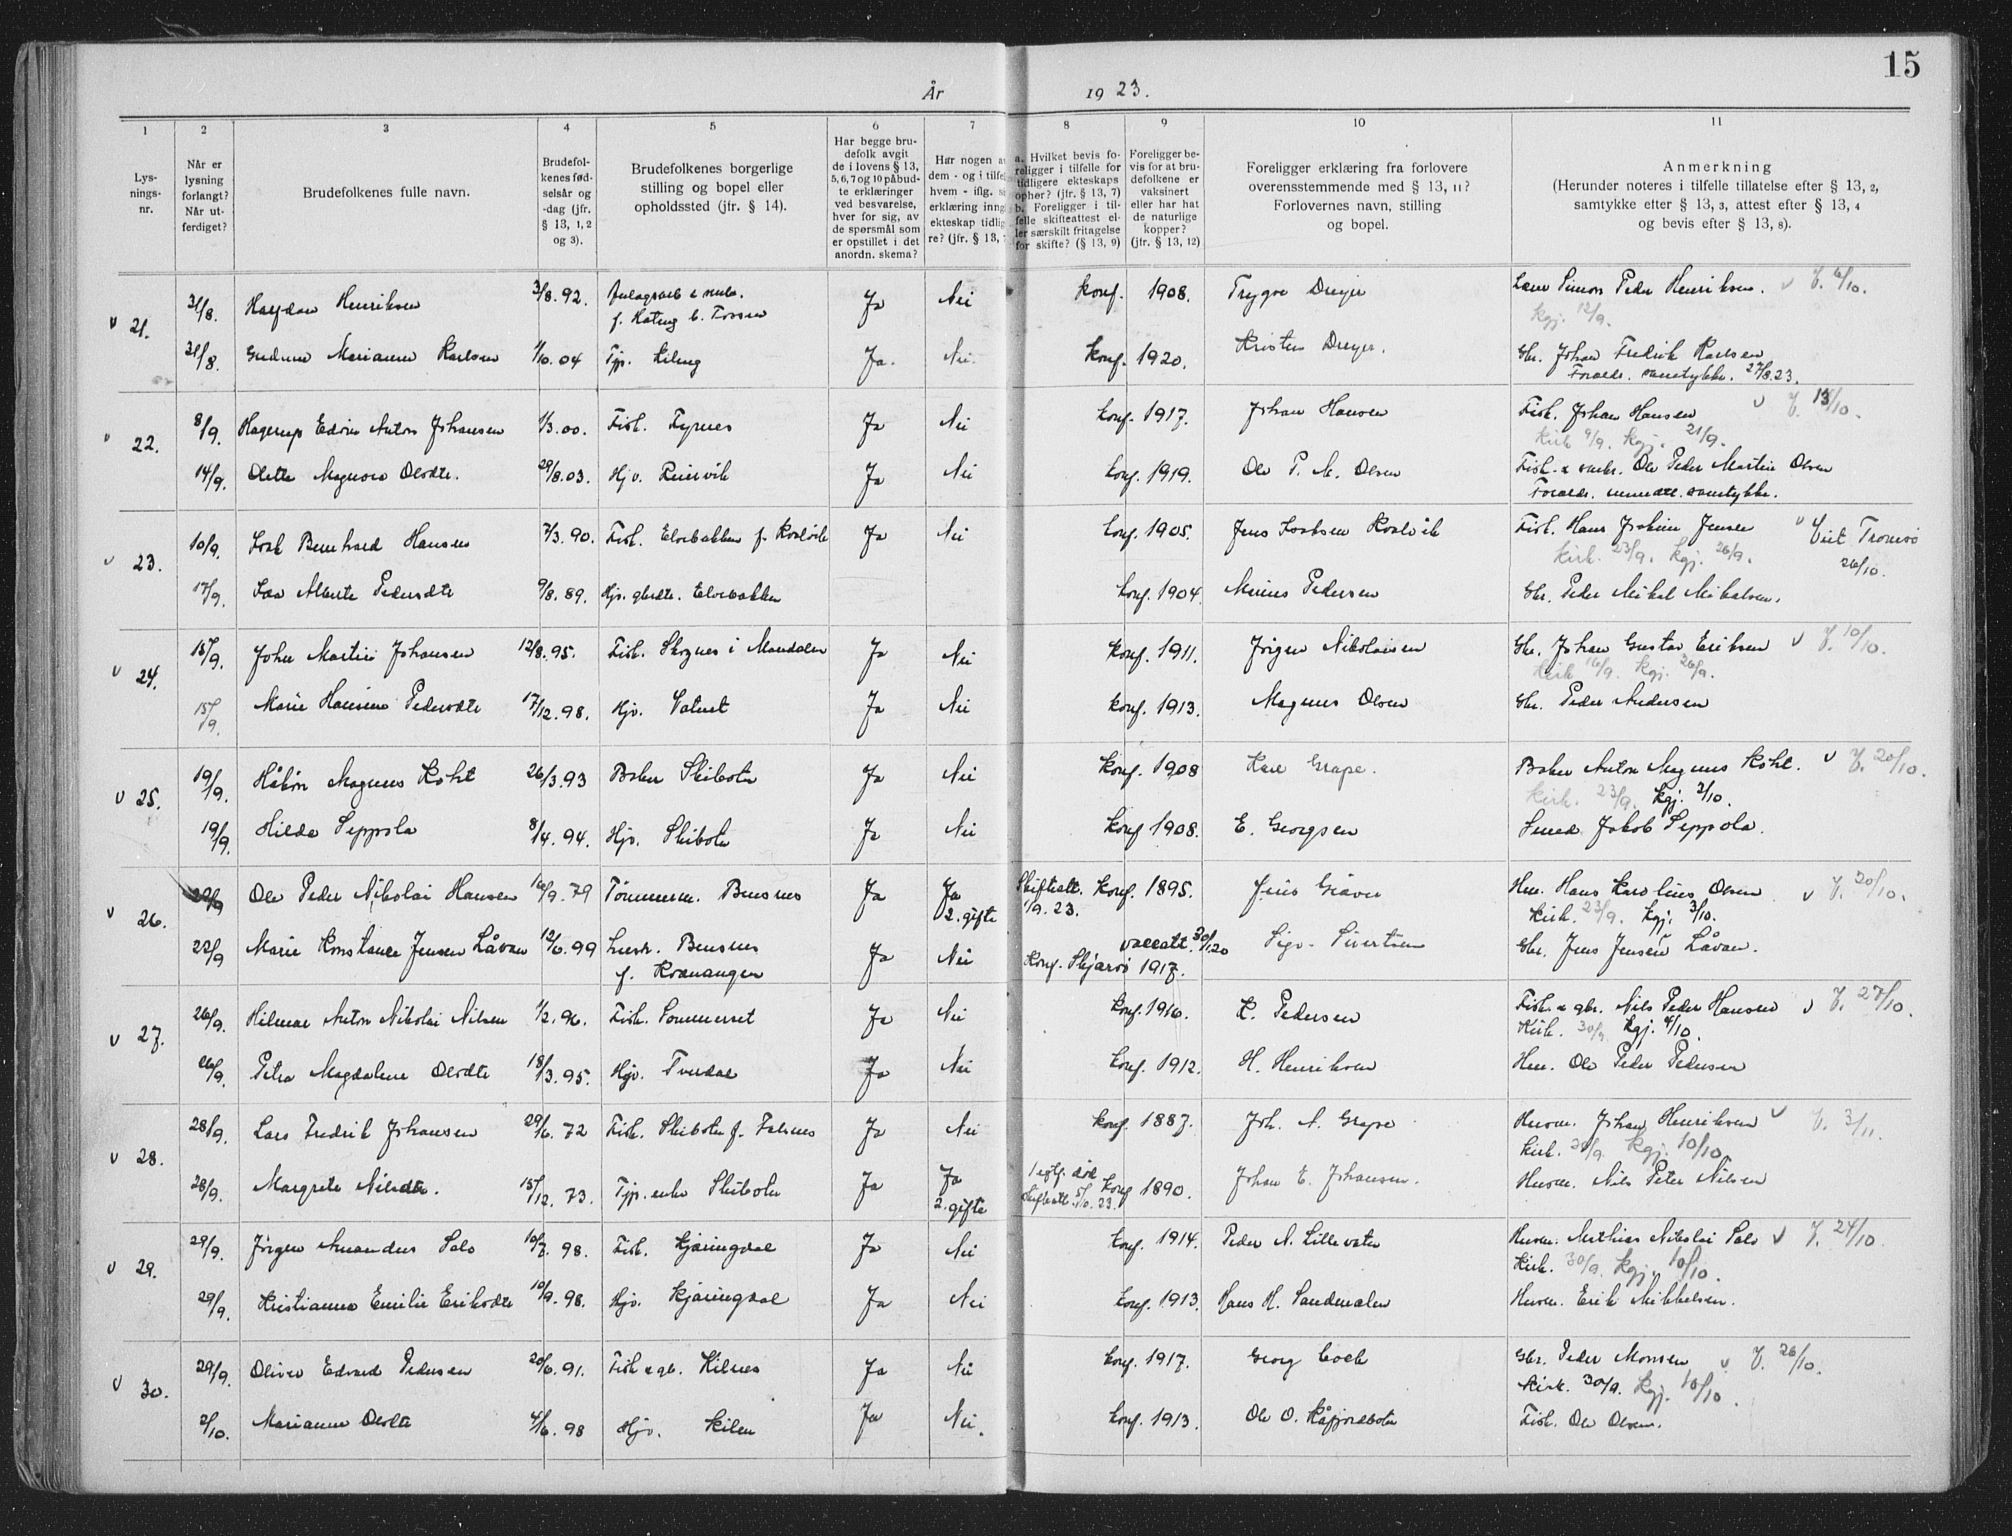 15
År 1923.
1 2 3 4 5 6 7 8 9 10 11
Lys-
nings-
nr.
Når er
lysning
forlangt?
Når ut-
ferdiget?
Brudefolkenes fulle navn.
Brudefol-
kenes fød-
selsår og
-dag (jfr.
§ 13, 1, 2
og 3).
Brudefolkenes borgerlige
stilling og bopel eller
opholdssted (jfr. § 14).
Har begge bru-
defolk avgit
de i lovens § 13,
5, 6, 7 og 10 påbud-
te erklæringer
ved besvarelse,
hver for sig, av
de spørsmål som
er opstillet i det
anordn. skema?
Har nogen a
dem - og i tilfel
hvem - iflg. s
erklæring inng
ekteskap tidlig
re? (jfr. § 13, 7
a. Hvilket bevis fo-
religger i tilfelle for
tidligere ekteskaps
ophør? (jfr. § 13, 7)
b. Foreligger i til-
felle skifteattest el-
ler særskilt fritagelse
for skifte? (§ 13, 9)
Foreligger be-
vis for at bru-
defolkene er
vaksinert
eller har hat
de naturlige
kopper?
(jfr. § 13, 12)
Foreligger erklæring fra forlovere
overensstemmende med § 13, 11?
Forlovernes navn, stilling
og bopel.
Anmerkning
(Herunder noteres i tilfelle tillatelse efter § 13, 2,
samtykke efter § 13, 3, attest efter § 13, 4
og bevis efter § 13, 8).
v 21. 31/8. Halfdan Henriksen 3/8.92. Ja Nei Konf. 1908. Trygve Dreyer Simon Peder Henriksen. v V. 6/10.
kgj. 12/9.
31/8. Gudrun Marianne Karlsen 1/10.04 Tjp. Kileng Ja. Nei. Konf. 1920. Kristen Dreyer. Gbr. Johan Fredrik Karlsen
Foreldr. samtykke. 27/8.23.
v 22. 8/9. Hagerup Edvin Anton Johansen 1/3.00. Fisk. Ja Nei konf. 1917. Johan Hansen Fisk. Johan Hansen v V. 13/10.
Kirk. 9/9. kgj. 21/9.
14/9. Oletta Magnora Olsdtr. 29/8.03. Hjv. Ja Nei konf. 1919. Ole P. M. Olsen Fisk. & Ole Peder Martin Olsen
Foreldr. samtykke.
v 23. 10/9. Bernhard Hansen 7/3.90. Fisk. Elvebakken f. Ja Nei konf. 1905. Jens Fisk. Hans Joakim Jensen v Viet Tromsö
Kirk. 23/9. kgj. 26/9. 26/10.
17/9. Alberte Pedersdtr 9/8.89. Hjv. gbrdtr. Elvebakken konf. 1904. Marius Pedersen Gbr. Peder Mikal Mikalsen.
v 24. 15/9. John Martin Johansen 12/8.95. Fisk. Skognes i Mandalen Ja Nei konf. 1911. Jörgen Nikolaisen Gbr. Johan Gustav Eriksen v V. 10/10.
Kirk 16/9. kgj. 26/9.
15/9. Marie Hansine Pedersdtr 17/12.98. Hjv. Ja Nei konf. 1913. Magnus Olsen Gbr. Peder Andersen
v 25. 19/9. Håkon Magnus Koht 26/3.93 Baker Skibotn Ja Nei konf. 1908 Karl Grape. Baker Anton Magnus Koht. v V. 20/10.
Kirk. 23/9. kgj. 2/10.
19/9. Hilda Seppola 8/4.94. Hjv. Skibotn Ja Nei konf. 1908. E. Georgsen Smed Jakob Seppola.
v 26. 22/9 Ole Peder Nikolai Hansen 16/9.79 Tömmerm. Bensnes Ja Ja Skifteatt. konf. 1895. Jens Giæver Hans Karolius Olsen v V. 20/10.
2. gifte 1/9.23. Kirk. 23/9. kgj. 3/10.
22/9 Marie Konstance Jensen Låvan 12/6.99 Bensnes Ja Nei vaccatt. 30/1.20 Sigv. Sivertsen Gbr. Jens Jensen Låvan.
f. Kvænangen Konf. Skjærvö 1917.
v 27. 26/9. Hilmar Anton Nikolai Nilsen 1/2.96. Fisk. Sommerset Ja Nei konf. 1910. K. Pedersen Fisk. & gbr. Nils Peder Hansen v V. 27/10.
Kirk. 30/9 kgj. 4/10.
26/9. Petra Magdalene Olsdtr 18/3.95. Hjv. Tverdal Ja Nei konf. 1912. H. Henriksen Ole Peder Pedersen
v 28. 28/9. Lars Fredrik Johansen 29/6.72 Fisk. Skibotn f. Ja Nei konf. 1887. Joh. A. Grape Husm. Johan Henriksen v V. 3/11.
Kirk. kgj. 10/10
28/9. Margrete Nilsdtr. 15/12.73. Tjp. enke Skibotn Ja Ja konf 1890. Johan E. Johansen. Husm. Nils Peter Nilsen
2. gifte
v 29. 29/9. Jörgen Amandus Salo 10/7.98. Fisk. Kjæringdal Ja Nei konf. 1914. Peder N. Lillevatn Husm. Mathias Nikolai Salo v V. 24/10
Kirk. 30/9. kgj. 10/10.
29/9. Kristianna Emilie Eriksdtr 10/9.98. Hjv. Kjæringdal Ja Nei konf. 1913. Hans H. Sandmælen Husm. Erik Mikkelsen.
v 30. 29/9. Oliver Edvard Pedersen 20/6.91. Fisk & gb. Kilnes Ja Nei konf. 1917. Georg Gbr. Peder Monsen v V. 26/10.
Kirk. 30/9. kgj. 10/10.
2/10. Marianne Olsdtr 4/6.98 Hjv. Kilen Ja Nei. konf. 1913. Ole O. Kåfjordbotn Fisk. Ole Olsen.